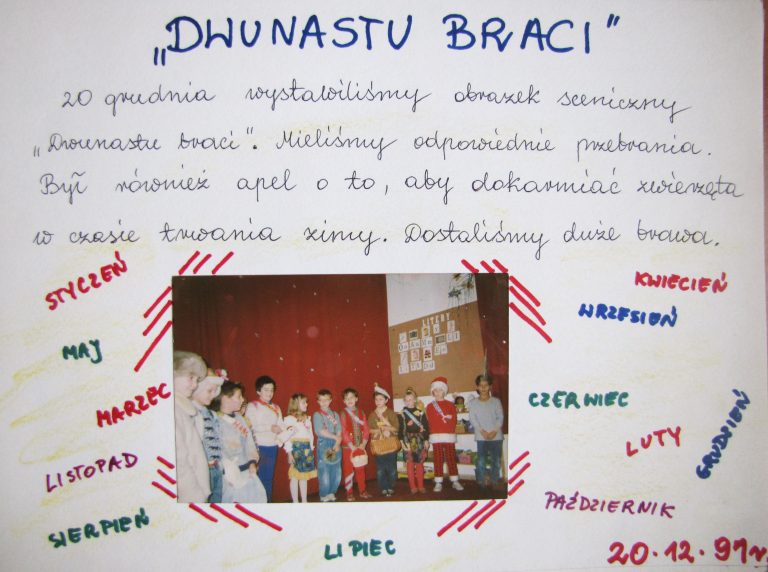 „DWUNASTU BRACI"
20 grudnia wystawiliśmy obrazek sceniczny
„Dwunastu braci". Mieliśmy odpowiednie przebrania.
Był również apel o to, aby dokarmiać zwierzęta
w czasie trwania zimy. Dostaliśmy duże brawa.
STYCZEŃ
KWIECIEŃ
WRZESIEŃ
MAJ
LITERY
MARZEC
CZERWIEC
LUTY
GRUDZIEŃ
LISTOPAD
PAŹDZIERNIK
SIERPIEŃ
LIPIEC
20.12.91r.